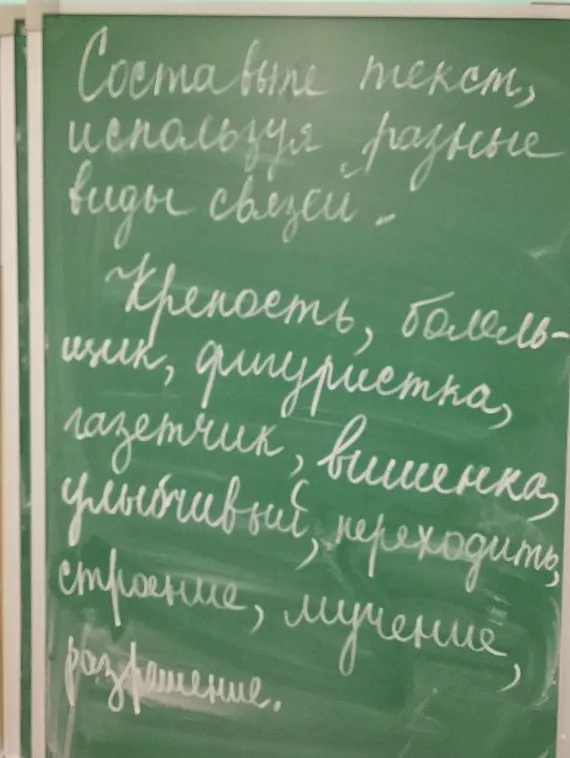 Составьте текст,
используя разные
виды связей.
Крепость, болель-
щик, фигуристка,
газетчик, вишенка,
улыбчивый, переходить,
строение, мучение,
разрешение.